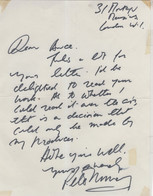 31
London W.1.
Dear Bruce.
Thanks a lot for
your letter. I'd be
delighted to read your
work. As to whether I
could read it over the air,
that is a decision that
could only be made by
my Producer.
Hope you well.
Yours sincerely
Pete Murray